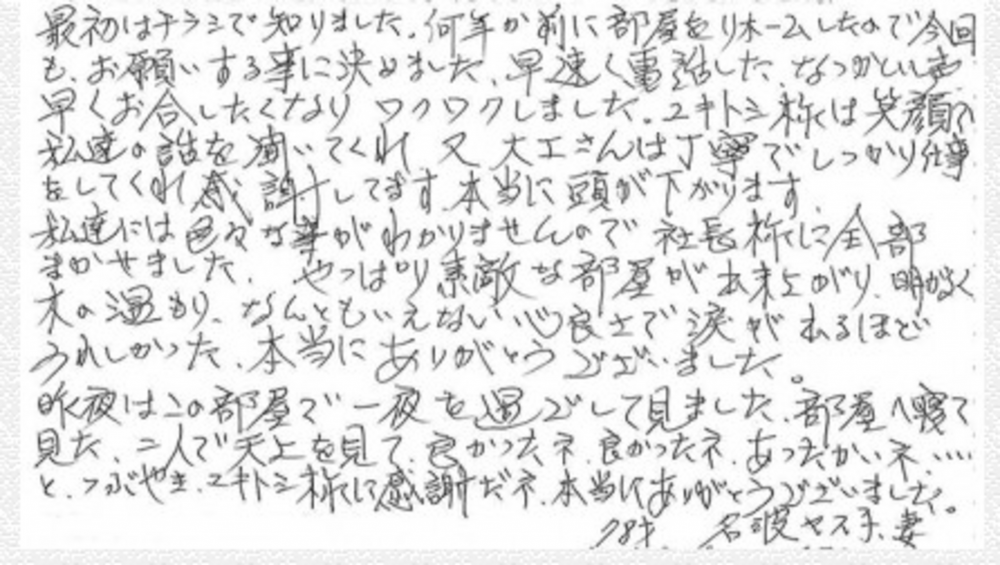 最初はチラシで知りました。何年か前に部屋をリホームしたので今回
も、お願いする事に決めました。早速く電話した、なつかしい声
早くお会したくなり ワクワクしました。ユキトシ様は笑顔で
私達の話を聞いてくれ 又 大工さんは丁寧でしっかり仕事
をしてくれ感謝してます。本当に頭が下がります。
私達には色々な事がわかりませんので 社長様に全部
まかせました。 やっぱり素敵な部屋が出来上がり、明かるく
木の温もり、なんともいえない心良さで涙が出るほど
うれしかった、本当にありがとうございました。
昨夜はこの部屋で一夜を過ごして見ました。部屋へ寝て
見た、二人で天上を見て、良かったネ、良かったネ、あったかいネ、‥‥
と、つぶやき、ユキトシ様に感謝だネ、本当にありがとうございました。
名波ヤス子、妻